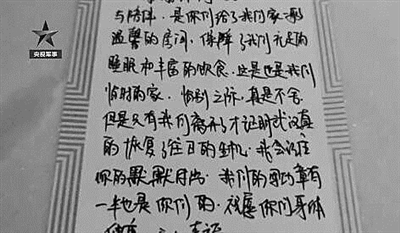 央视军事
与陪伴，是你们给了我们家
温馨的房间，保障了我们充足的
睡眠和丰富的饮食，这里也是我们
临时的家，临别之际，真是不舍
但是只有我们离开了才证明武汉真
的恢复了往日的生机，我会记住
你的默默付出，我们的军功章有
一半也是你们的，祝愿你们身体